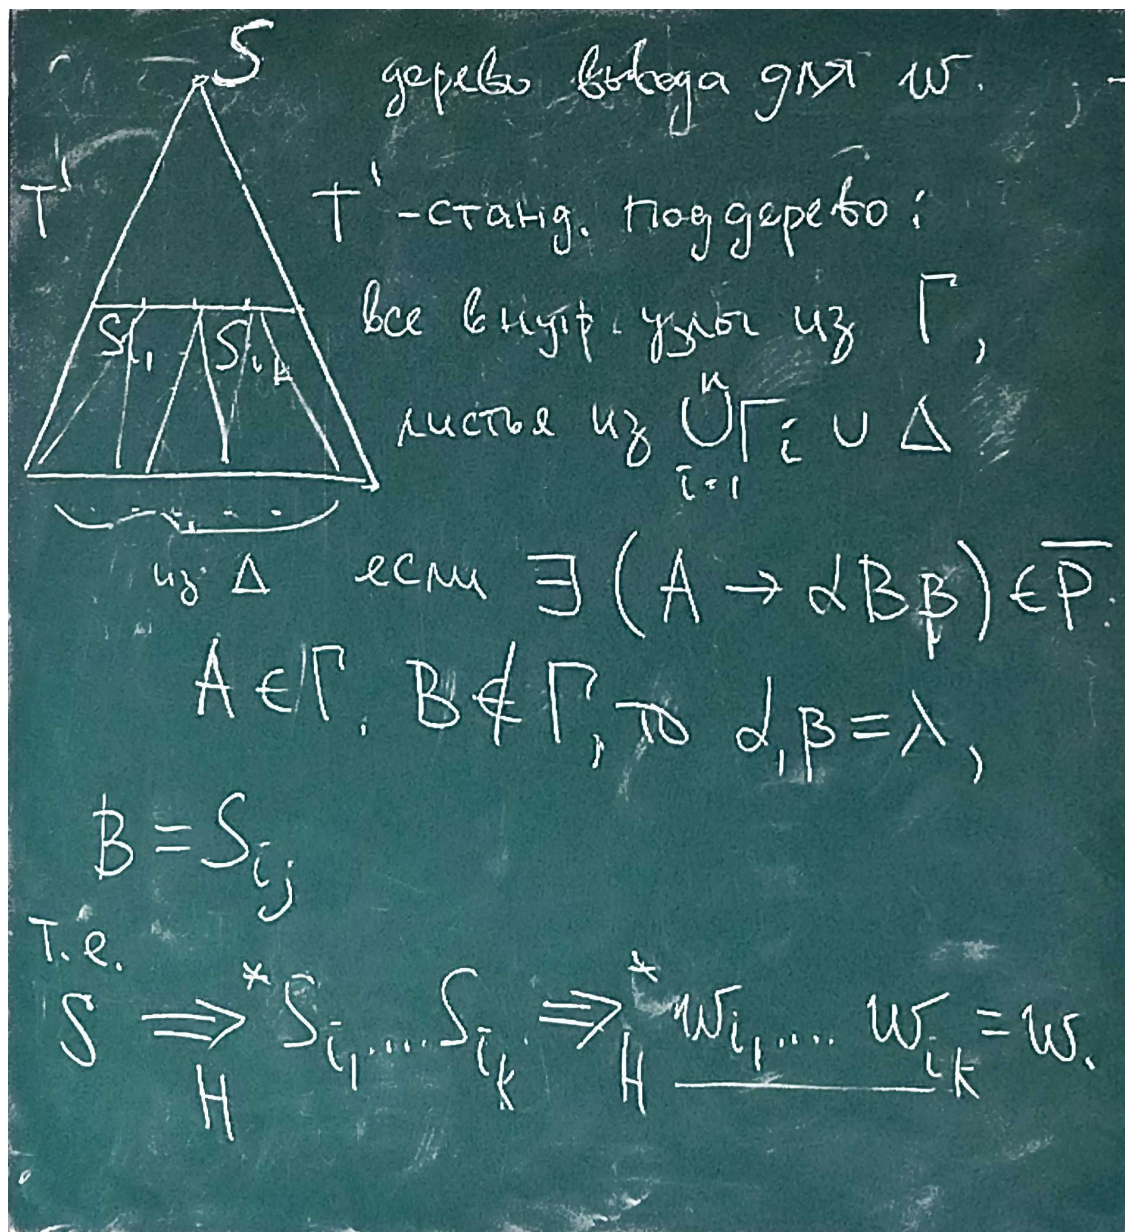 S
дерево вывода для w.
T'
T' - станд. поддерево:
все внутр. узлы из Γ,
S_{i_1} S_{i_k}
листья из \bigcup_{i=1}^{n} Γ_i ∪ Δ
из Δ если ∃ (A → αBβ) ∈ \overline{P}.
A ∈ Γ, B ∉ Γ, то α, β = λ,
B = S_{i_j}
т.е.
S ⇒^*_H S_{i_1} .... S_{i_k} ⇒^*_H w_{i_1} .... w_{i_k} = w.